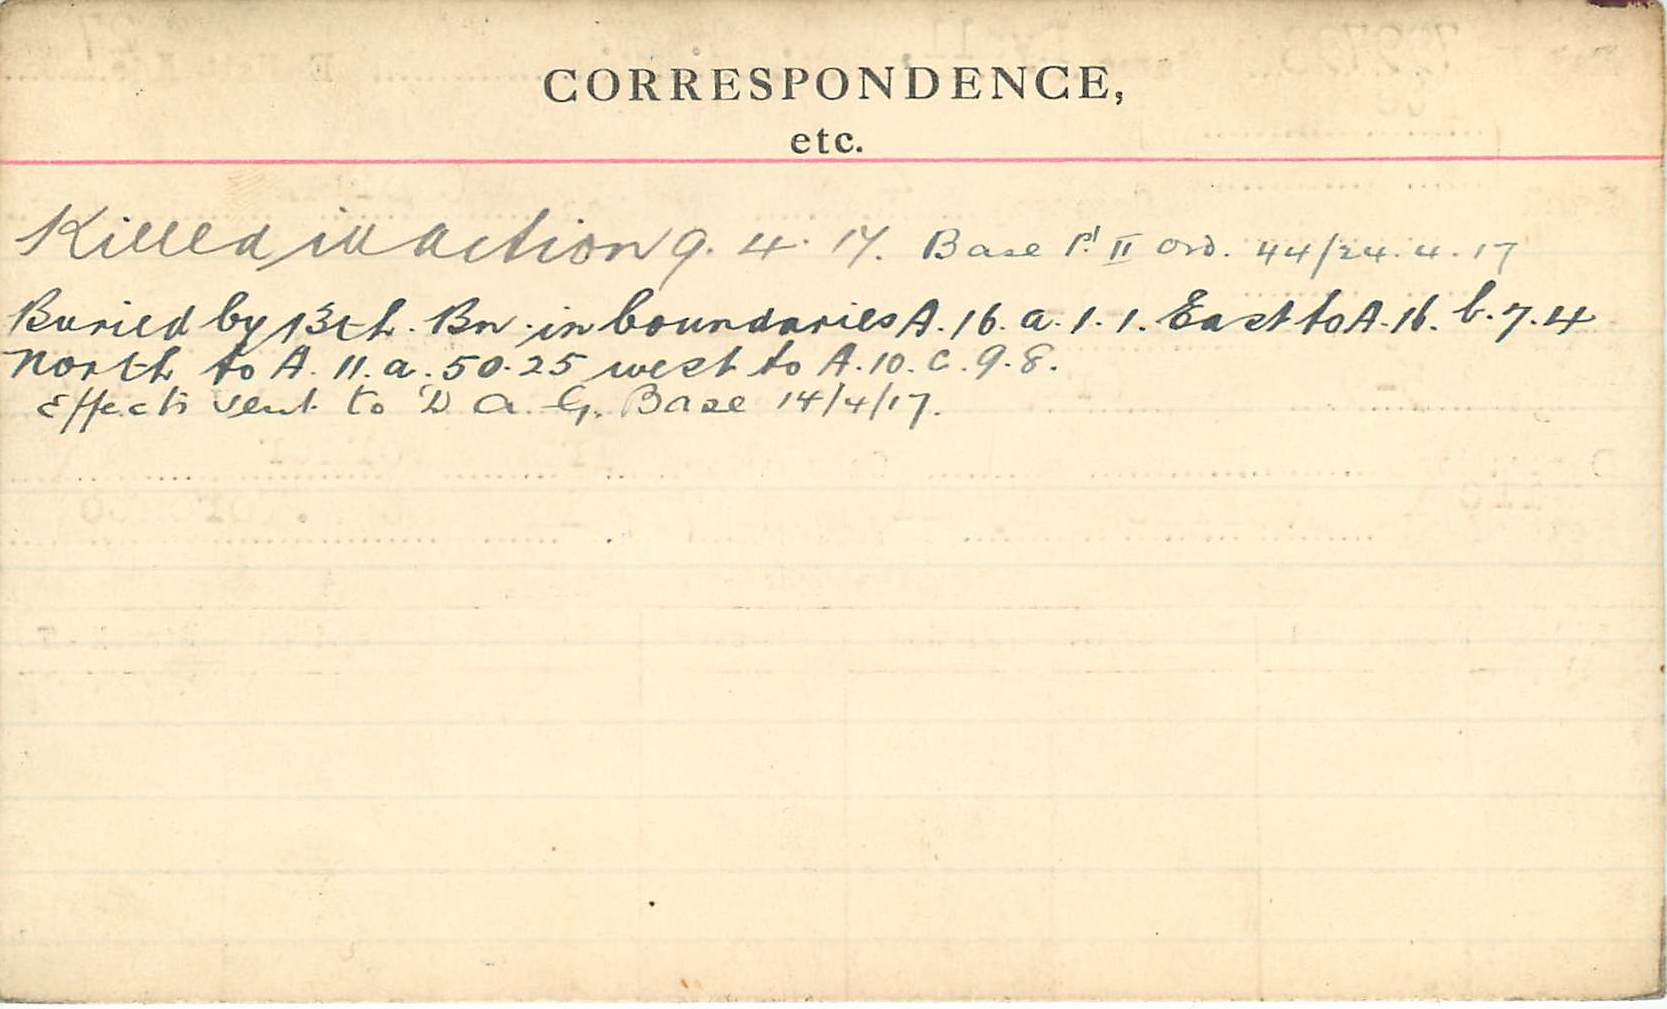 CORRESPONDENCE,
etc.
Killed in action 9. 4. 17. Base Pt II Ord. 44/24.4.17
Buried by 13th. Bn. in boundaries A.16.a.1.1. East to A.16.b.7.4
North to A.11.a.50.25 west to A.10.C.9.8.
Effects sent to D A G. Base 14/4/17.